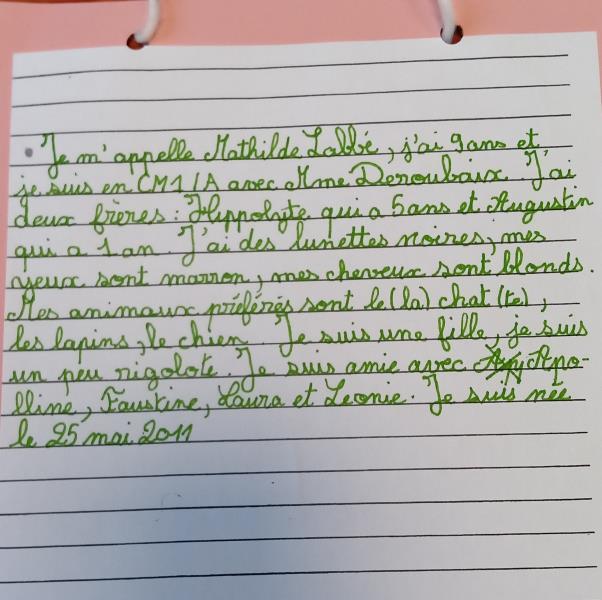 • Je m'appelle Mathilde Labbé, j'ai 9 ans et
je suis en CM1/A avec Mme Deroubaix. J'ai
deux frères : Hippolyte qui a 5 ans et Augustin
qui a 1 an. J'ai des lunettes noires, mes
yeux sont marron, mes cheveux sont blonds.
Mes animaux préférés sont le(la) chat(te),
les lapins, le chien. Je suis une fille, je suis
un peu rigolote. Je suis amie avec Apo-
lline, Faustine, Laura et Leonie. Je suis née
le 25 mai 2011